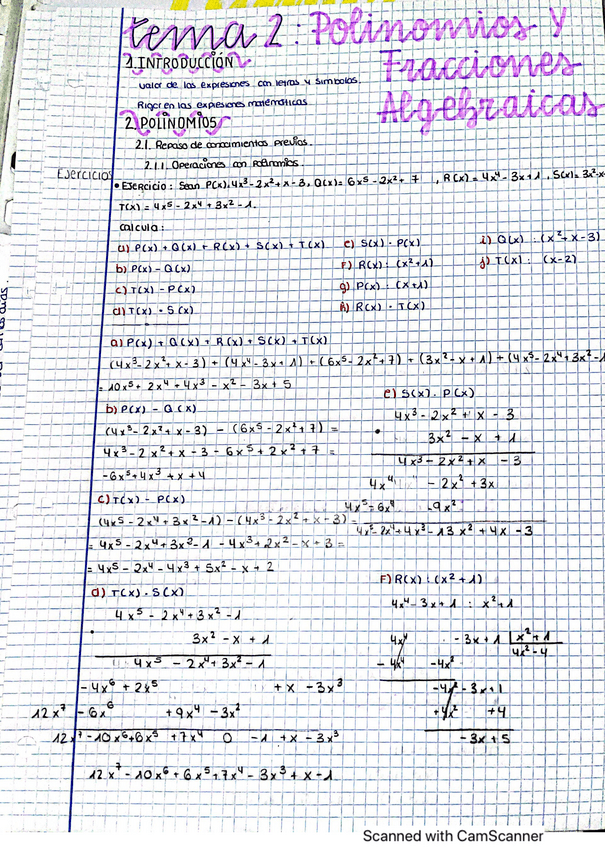 tema 2: Polinomios y
Fracciones
Algebraicas
1. INTRODUCCIÓN
valor de las expresiones con letras y simbolos.
Rigor en las expresiones matemáticas
2. POLINOMIOS
2.1. Repaso de conocimientos previos.
2.1.1. Operaciones con Polinomios
Ejercicios
• Ejercicio: Sean P(x)=4x³-2x²+x-3, Q(x)=6x⁵-2x²+7, R(x)=4x⁴-3x+1, S(x)=3x²-x
T(x)=4x⁵-2x⁴+3x²-1.
calcula:
a) P(x)+Q(x)+R(x)+S(x)+T(x) e) S(x)·P(x) i) Q(x):(x²+x-3)
b) P(x)-Q(x) F) R(x):(x²+1) j) T(x):(x-2)
c) T(x)-P(x) g) P(x):(x+1)
d) T(x)·S(x) h) R(x)·T(x)
a) P(x)+Q(x)+R(x)+S(x)+T(x)
(4x³-2x²+x-3)+(4x⁴-3x+1)+(6x⁵-2x²+7)+(3x²-x+1)+(4x⁵-2x⁴+3x²-1
=10x⁵+2x⁴+4x³-x²-3x+5
b) P(x)-Q(x)
(4x³-2x²+x-3)-(6x⁵-2x²+7)=
4x³-2x²+x-3-6x⁵+2x²+7=
-6x⁵+4x³+x+4
c) T(x)-P(x)
(4x⁵-2x⁴+3x²-1)-(4x³-2x²+x-3)=
=4x⁵-2x⁴+3x²-1-4x³+2x²-x+3=
=4x⁵-2x⁴-4x³+5x²-x+2
d) T(x)·S(x)
4x⁵-2x⁴+3x²-1
· 3x²-x+1
4x⁵-2x⁴+3x²-1
-4x⁶+2x⁵ +x-3x³
12x⁷-6x⁶ +9x⁴-3x²
12x⁷-10x⁶+6x⁵+7x⁴ 0 -1+x-3x³
12x⁷-10x⁶+6x⁵+7x⁴-3x³+x-1
e) S(x)·P(x)
4x³-2x²+x-3
· 3x²-x+1
4x³-2x²+x-3
4x⁴ -2x²+3x
4x⁵=6x⁴ -9x²
4x⁵-2x⁴+4x³-13x²+4x-3
F) R(x):(x²+1)
4x⁴-3x+1 : x²+1
4x⁴ -3x+1 x²+1
-4x⁴ -4x² 4x²-4
-4x²-3x+1
+4x² +4
-3x+5
Scanned with CamScanner